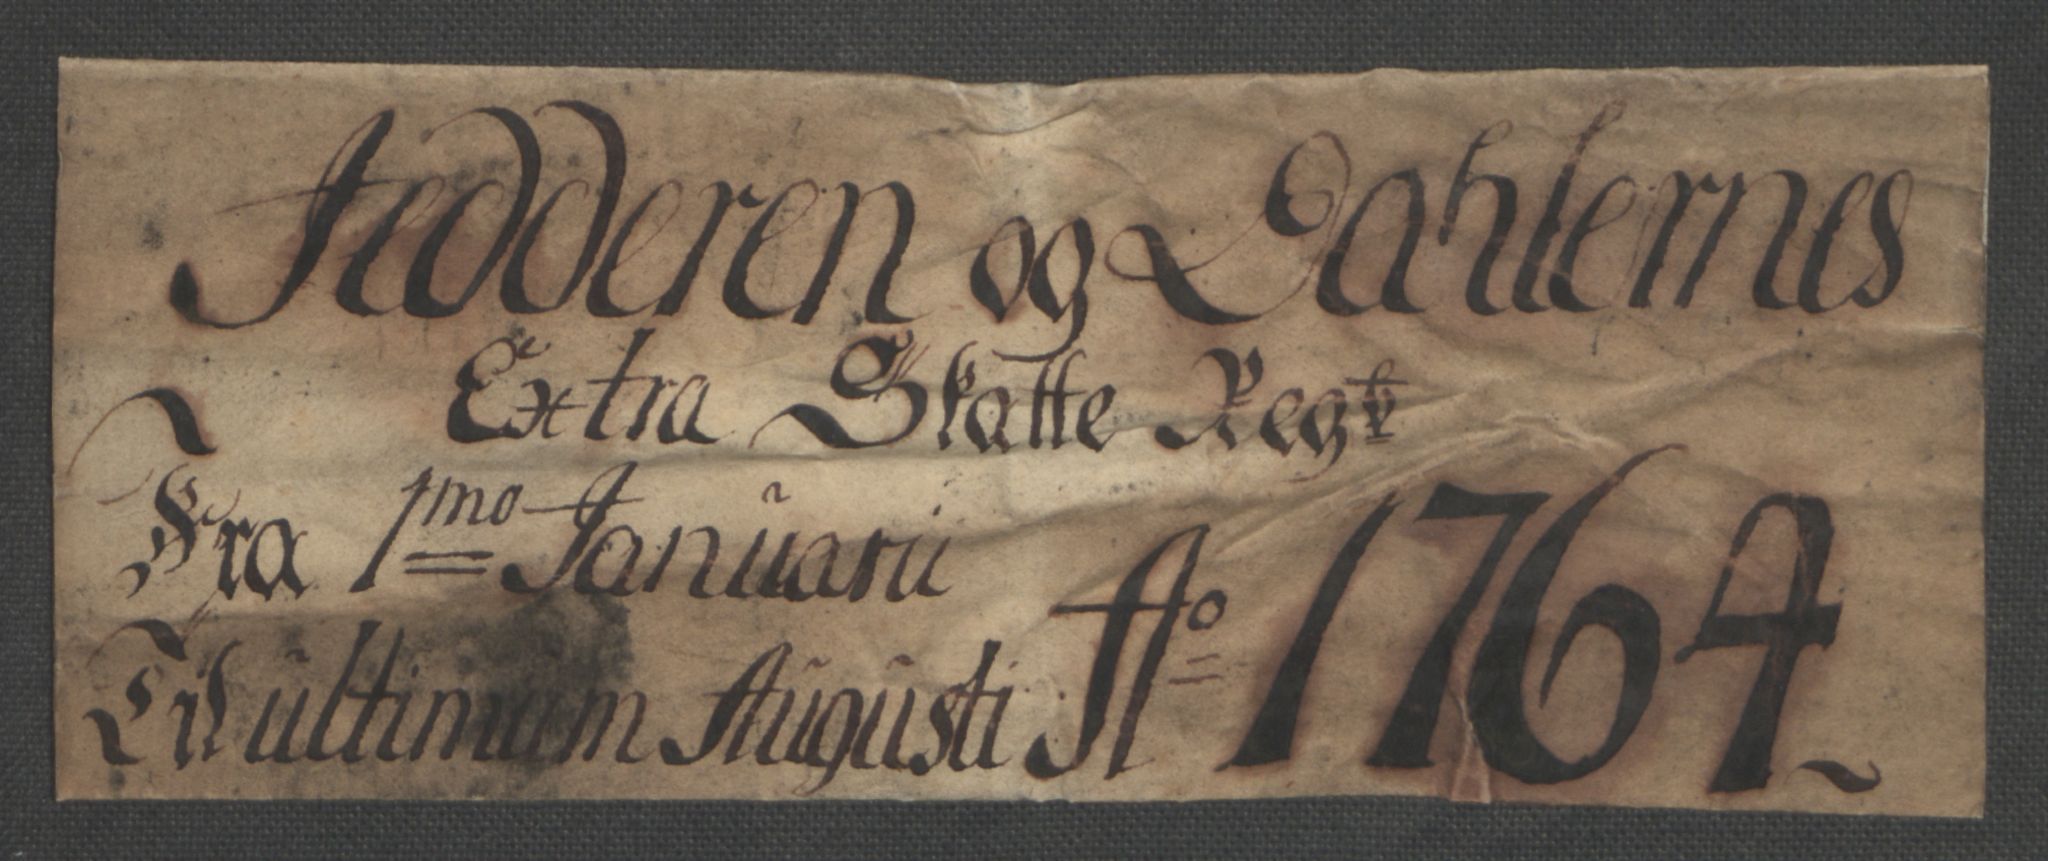 Jedderen og Dahlernes
Extra Skatte Regtr
Fra 1mo Januarii
Til ultimum Augusti Ao 1764